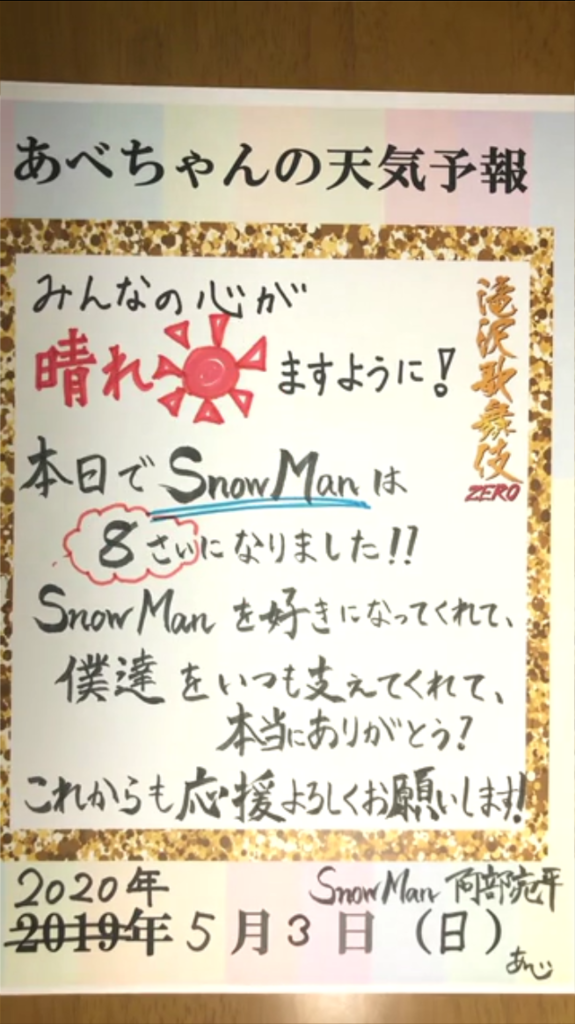 あべちゃんの天気予報
みんなの心が
晴れますように!
滝沢歌舞伎
ZERO
本日でSnow Manは
8さいになりました!!
Snow Manを好きになってくれて、
僕達をいつも支えてくれて、
本当にありがとう?
これからも応援よろしくお願いします!
2020年
Snow Man 阿部亮平
2019年5月3日(日)